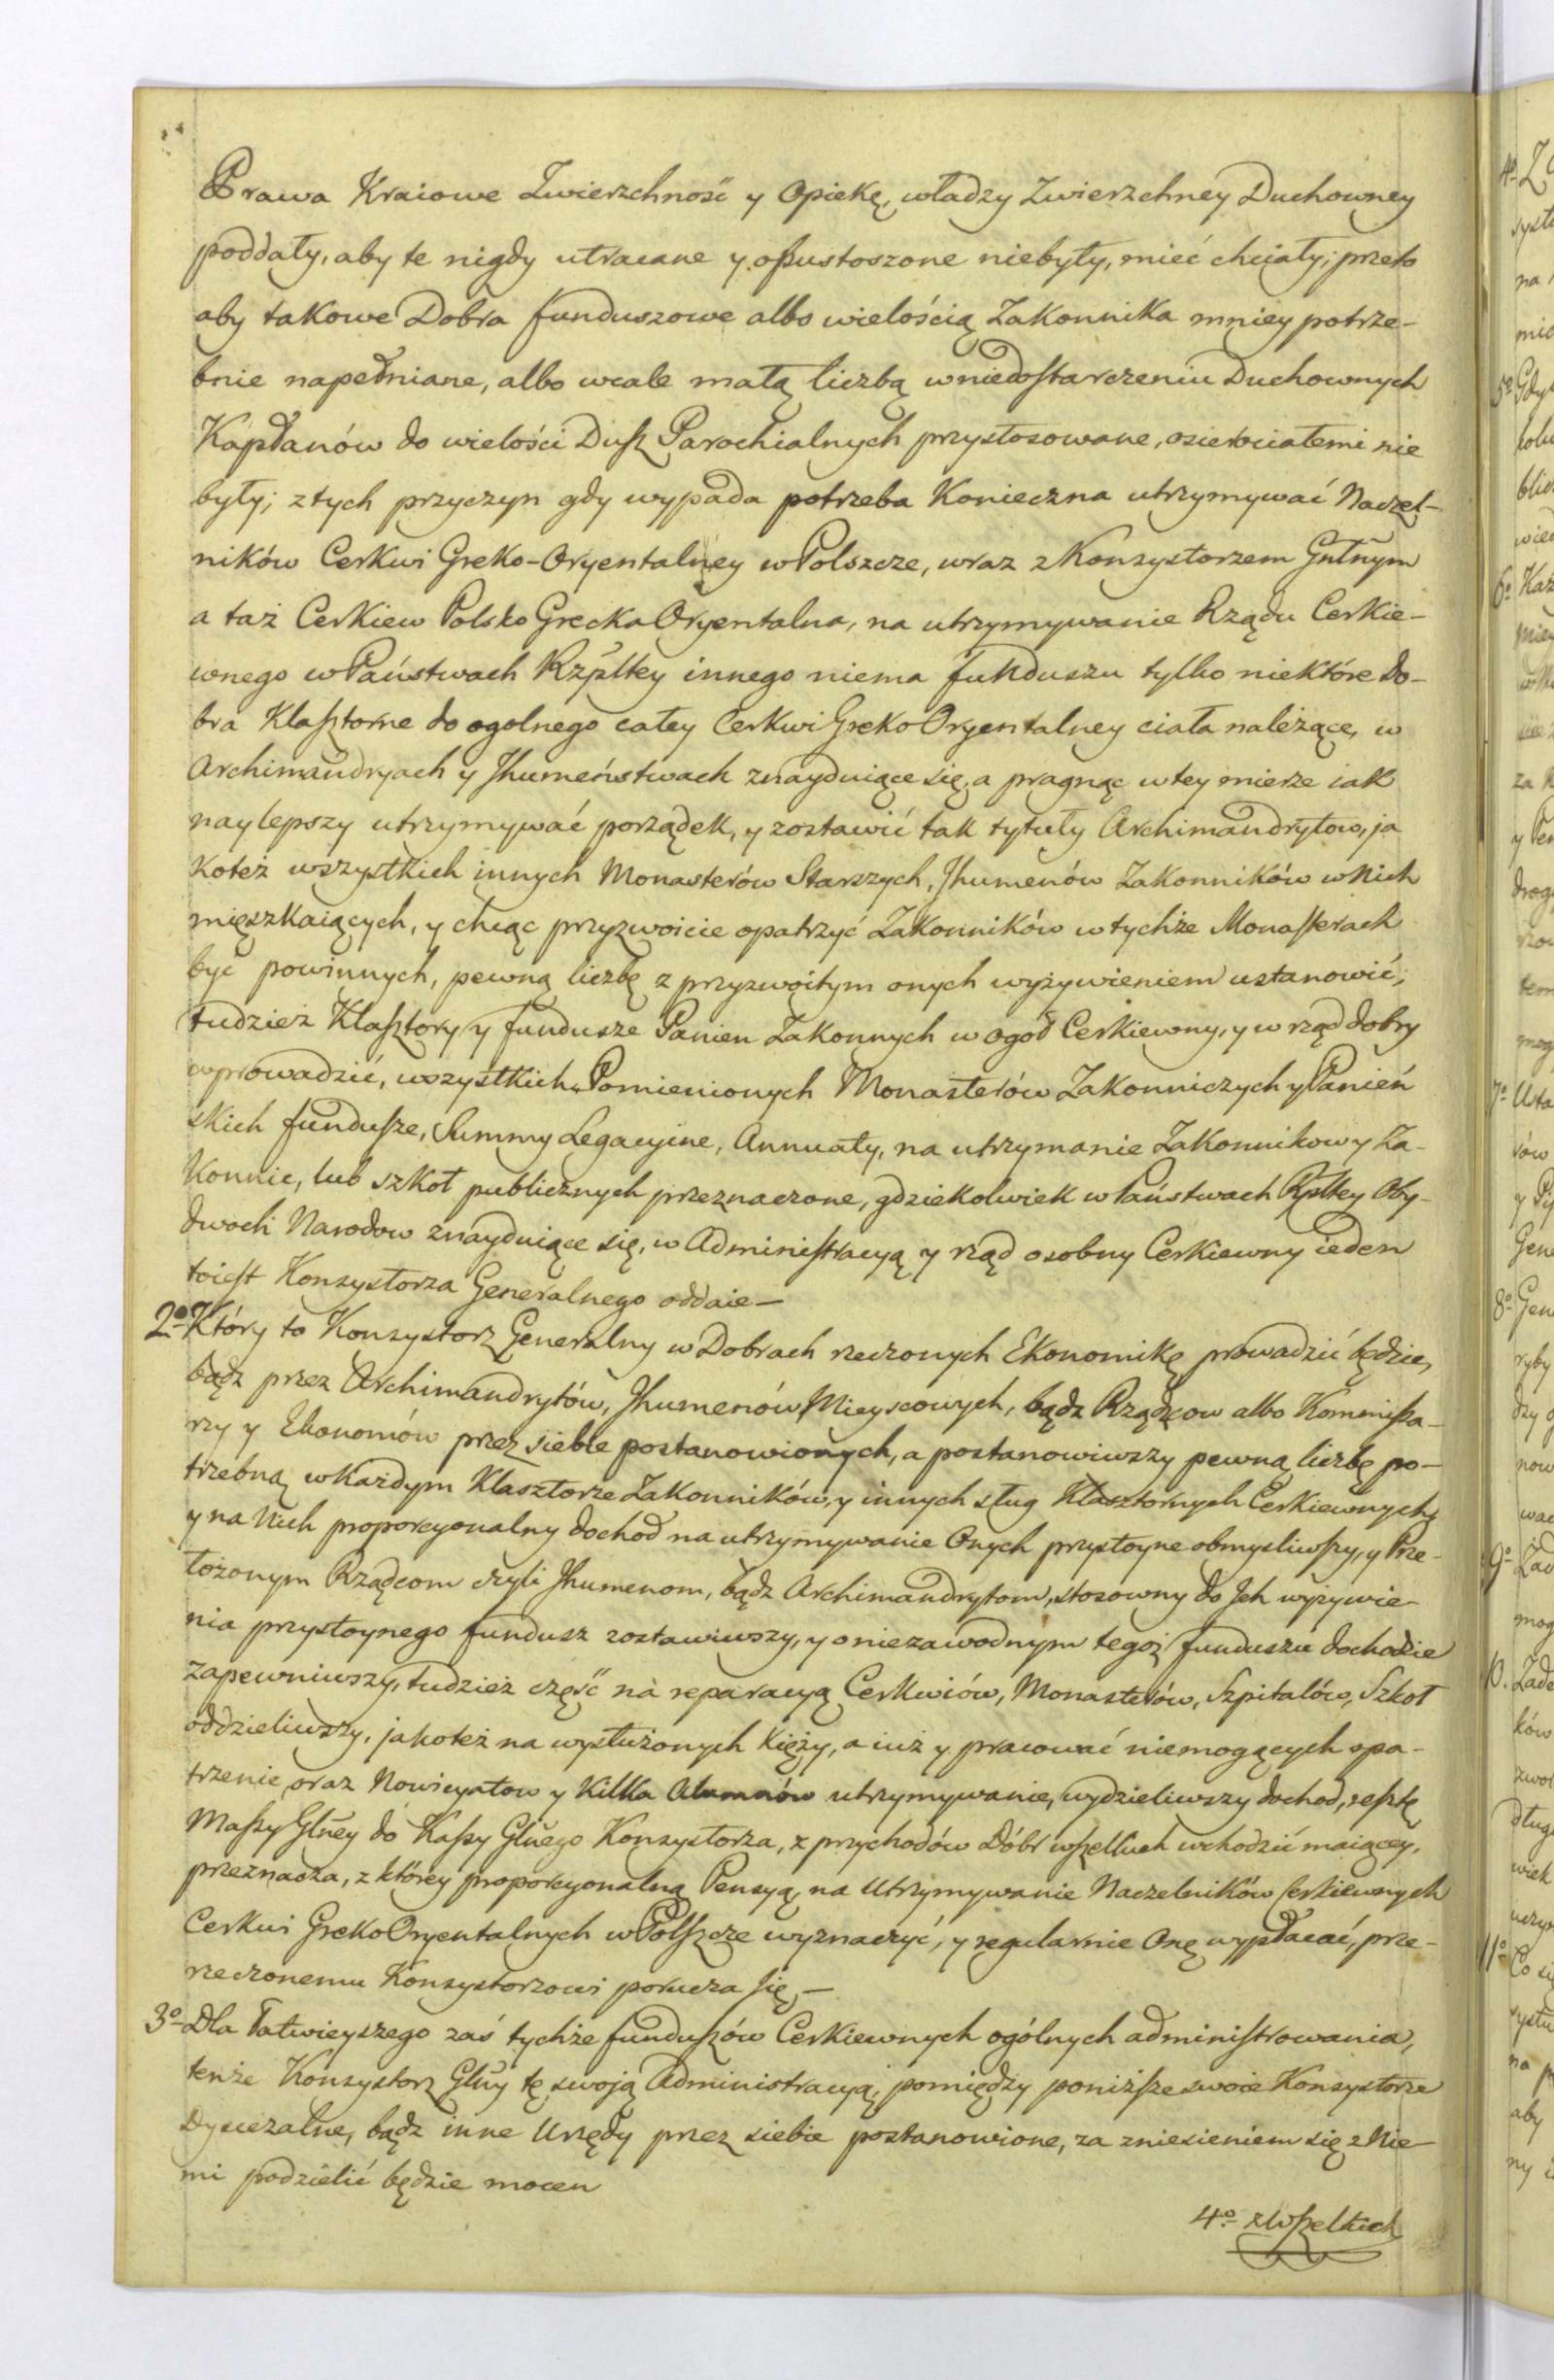 Prawa Kraiowe Zwierzchność y Opiekę, władzy Zwierzchney Duchowney
poddały, aby te nigdy utracane y opustoszone niebyły, mieć chciały; przeto
aby takowe Dobra funduszowe albo wielością Zakonnika mniey potrze-
bnie napełniane, albo wcale małą liczbą w niedostarczeniu Duchownych
Kapłanów do wielości Dusz Parochialnych przystosowane, osierociałemi nie
były; z tych przyczyn gdy wypada potrzeba Konieczna utrzymywać Naczel-
ników Cerkwi Greko-Oryentalney w Polszcze, wraz z Konsystorzem Gnłnym
a taż Cerkiew Polsko Grecka Oryentalna, na utrzymywanie Rządu Cerkie-
wnego w Państwach Rzpltey innego niema funduszu tylko niektóre Do-
bra Klasztorne do ogolnego całey Cerkwi Greko Oryentalney ciała należące, w
Archimandryach y Jhumeństwach znayduiące się, a pragnąc w tey mierze iak
naylepszy utrzymywać porządek, y zostawić tak tytuły Archimandrytow, ja
koteż wszystkich innych Monasterów Starszych, Jhumenów Zakonników w Nich
mięszkaiących, y chcąc przyzwoicie opatrzyć Zakonników w tychże Monasterach
być powinnych, pewną liczbę z przyzwoitym onych wyżywieniem ustanowić;
tudzież Klasztory y fundusze Panien Zakonnych w ogół Cerkiewny, y w rząd dobry
wprowadzić, wszystkich Pomienionych Monasterów Zakonniczych y Panień
skich fundusze, Summy Legacyine, Annuaty, na utrzymanie Zakonnikow y Za-
Konnic, lub szkoł publicznych przeznaczone, gdziekolwiek w Państwach Rzpltey Oby-
dwoch Narodow znayduiące się, w Administracyą y rząd osobny Cerkiewny ieden
toiest Konsystorza Generalnego oddaie—
2º Który to Konsystorz Generalny w Dobrach rzeczonych Ekonomikę prowadzić będzie,
bądz przez Archimandrytów, Jhumenów Mieyscowych, bądz Rządzcow albo Kommissa-
rzy y Ekonomów przez siebie postanowionych, a postanowiwszy pewną liczbę po-
trzebną w Każdym Klasztorze Zakonników, y innych sług Klasztornych Cerkiewnych,
y na Nich proporcyonalny dochod na utrzymywanie Onych przystoyne obmysliwszy, y Prze-
łożonym Rządcom czyli Jhumenom, bądz Archimandrytom, stosowny do Jch wyżywie-
nia przystoynego fundusz zostawiwszy, y o niezawodnym tegoż funduszu dochodzie
zapewniwszy, tudzież część na reparacyą Cerkwiów, Monasterów, Szpitalów, Szkoł
oddzieliwszy, jakoteż na wysłużonych Xięży, a iuż y pracować niemogących opa-
trzenie, oraz Nowicyatow y Kilka Alumnów utrzymywanie, wydzieliwszy dochod, resztę
Massy Głney do Kassy Głnego Konsystorza, z przychodów Dóbr wszelkich wchodzić maiącey,
przeznacza, z którey proporcyonalną Pensyą na Utrzymywanie Naczelników Cerkiewnych
Cerkwi Greko Oryentalnych w Polszcze wyznaczyć, y regularnie Onę wypłacać, prze-
rzeczonemu Konsystorzowi porucza się,—
3º Dla Łatwieyszego zaś tychże funduszów Cerkiewnych ogólnych administrowania,
tenże Konsystorz Głny tę swoją Administracyą, pomiędzy poniższe swoie Konsystorze
Dyecezalne, bądz inne Urzędy przez siebie postanowione, za zniesieniem się z Nie-
mi podzielić będzie mocen
4º z Wszelkich